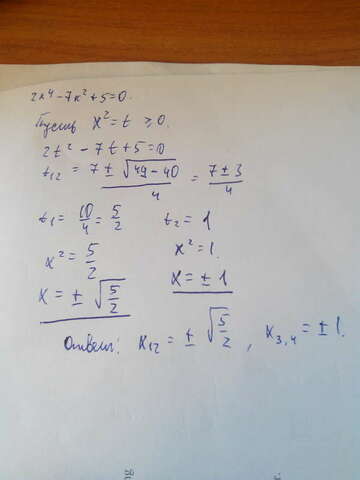 2x⁴ - 7x² + 5 = 0.
Пусть x² = t ≥ 0.
2t² - 7t + 5 = 0
t₁₂ = (7 ± √(49 - 40))/4 = (7 ± 3)/4
t₁ = 10/4 = 5/2 t₂ = 1
x² = 5/2 x² = 1.
x = ± √(5/2) x = ± 1
Ответ: x₁₂ = ± √(5/2), x₃,₄ = ± 1.